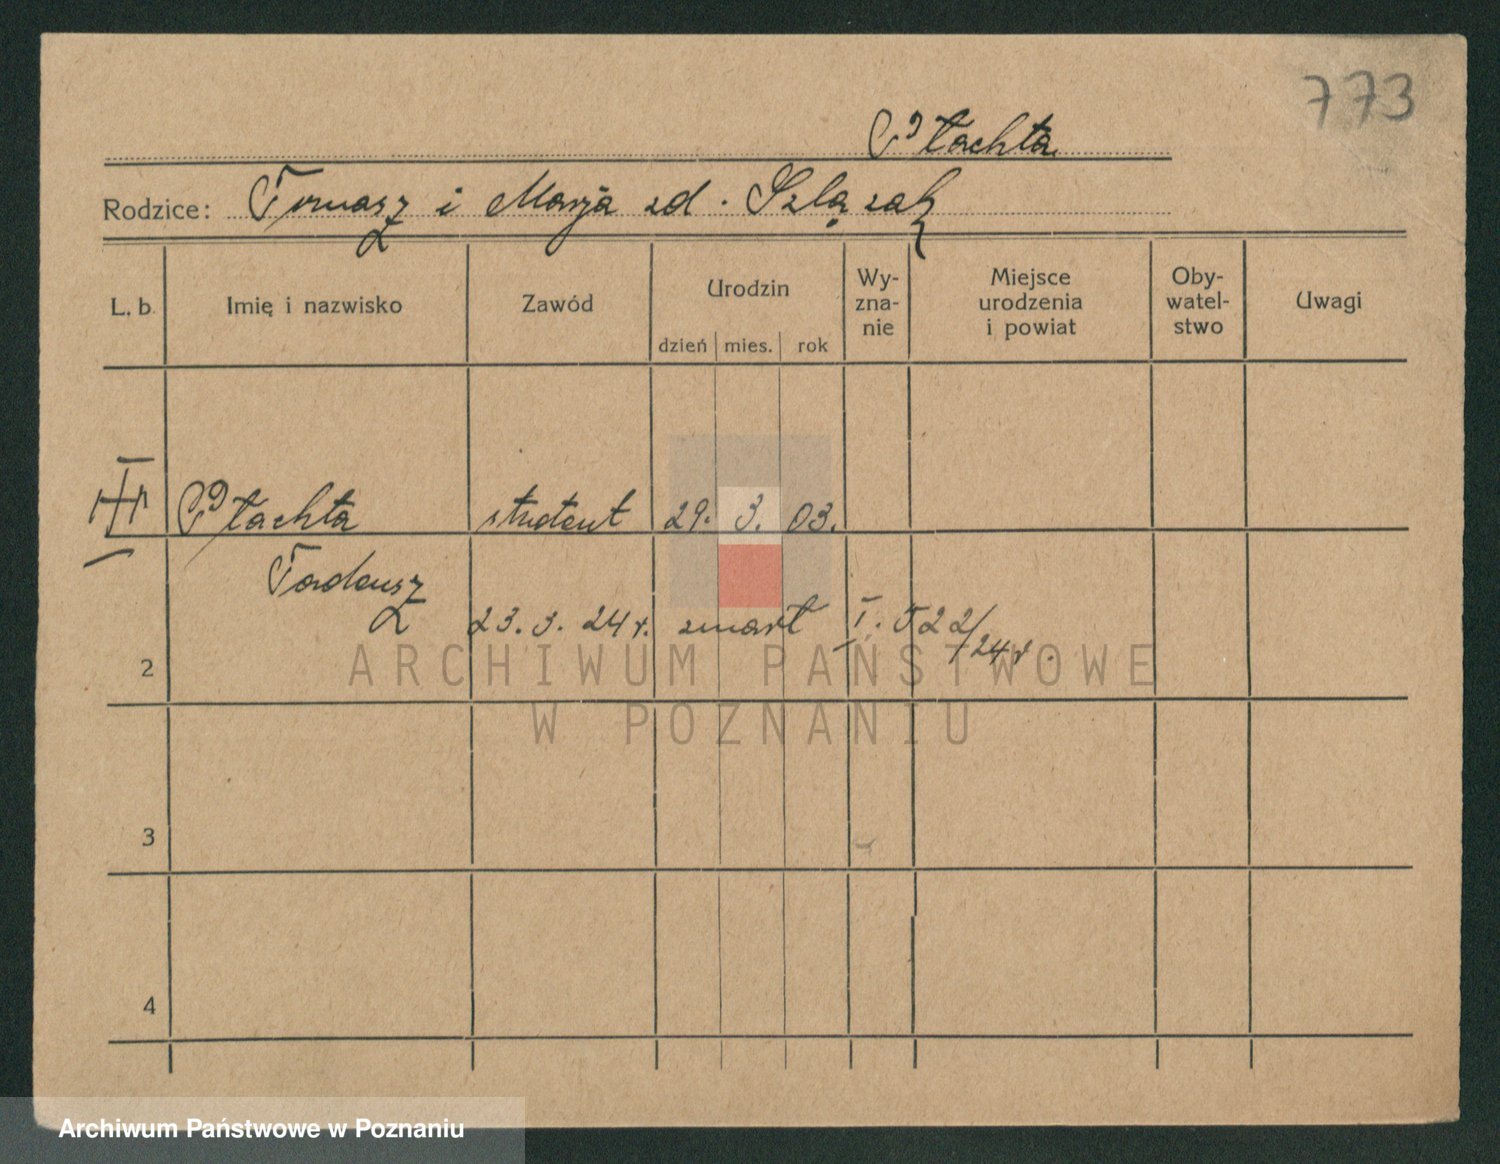 773
Płachta
Rodzice: Tomasz i Marja zd. Szlązak
L. b. Imię i nazwisko Zawód Urodzin Wy- zna- nie Miejsce urodzenia i powiat Oby- watel- stwo Uwagi
dzień mies. rok
Płachta student 29. 3. 03.
Tadeusz
23. 3. 24 r. zmarł I. 522/24 r.
2
ARCHIWUM PAŃSTWOWE
W POZNANIU
3
4
Archiwum Państwowe w Poznaniu